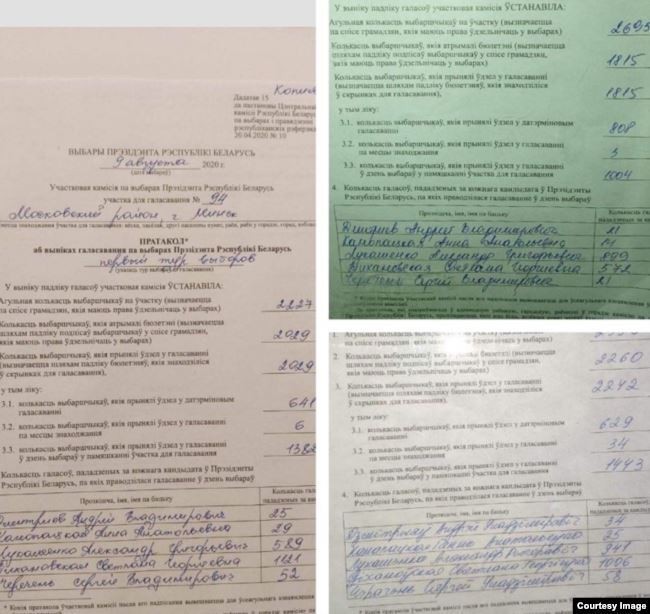 Копия
Дадатак 15
да пастановы Цэнтральнай
камісіі Рэспублікі Беларусь
па выбарах і правядзенні
рэспубліканскіх рэферэн
20.04.2020 № 10
ВЫБАРЫ ПРЭЗІДЭНТА РЭСПУБЛІКІ БЕЛАРУСЬ
9 августа 2020 г.
Участковая камісія па выбарах Прэзідэнта Рэспублікі Беларусь
участка для галасавання № 94
Московский район, г. Минск
ПРАТАКОЛ*
аб выніках галасавання па выбарах Прэзідэнта Рэспублікі Беларусь
первый тур выборов
У выніку падліку галасоў участковая камісія ЎСТАНАВІЛА:
Агульная колькасць выбаршчыкаў на ўчастку (вызначаецца
па спісе грамадзян, якія маюць права ўдзельнічаць у выбарах) 2227
Колькасць выбаршчыкаў, якія атрымалі бюлетэні (вызначаецца
шляхам падліку подпісаў выбаршчыкаў у спісе грамадзян,
якія маюць права ўдзельнічаць у выбарах) 2029
Колькасць выбаршчыкаў, якія прынялі ўдзел у галасаванні
(вызначаецца па колькасці бюлетэняў, якія знаходзіліся
ў скрынках для галасавання), 2029
у тым ліку:
3.1. колькасць выбаршчыкаў, якія прынялі ўдзел у датэрміновым
галасаванні 641
3.2. колькасць выбаршчыкаў, якія прынялі ўдзел у галасаванні
па месцы знаходжання 6
3.3. колькасць выбаршчыкаў, якія прынялі ўдзел у галасаванні
ў дзень выбараў у памяшканні ўчастка для галасавання 1382
Колькасць галасоў, пададзеных за кожнага кандыдата ў Прэзідэнты
Рэспублікі Беларусь, па якіх праводзілася галасаванне ў дзень выбараў
Прозвішча, імя, імя па бацьку
Дмитриев Андрей Владимирович 25
Канопацкая Анна Анатольевна 29
Лукашенко Александр Григорьевич 589
Тихановская Светлана Георгиевна 1121
Черечень Сергей Владимирович 52
У выніку падліку галасоў участковая камісія ЎСТАНАВІЛА:
Агульная колькасць выбаршчыкаў на ўчастку (вызначаецца
па спісе грамадзян, якія маюць права ўдзельнічаць у выбарах) 2695
Колькасць выбаршчыкаў, якія атрымалі бюлетэні (вызначаецца
шляхам падліку подпісаў выбаршчыкаў у спісе грамадзян,
якія маюць права ўдзельнічаць у выбарах) 1815
Колькасць выбаршчыкаў, якія прынялі ўдзел у галасаванні
(вызначаецца па колькасці бюлетэняў, якія знаходзіліся
ў скрынках для галасавання), 1815
у тым ліку:
3.1. колькасць выбаршчыкаў, якія прынялі ўдзел у датэрміновым
галасаванні 808
3.2. колькасць выбаршчыкаў, якія прынялі ўдзел у галасаванні
па месцы знаходжання 3
3.3. колькасць выбаршчыкаў, якія прынялі ўдзел у галасаванні
ў дзень выбараў у памяшканні ўчастка для галасавання 1004
4. Колькасць галасоў, пададзеных за кожнага кандыдата ў Прэзідэнты
Рэспублікі Беларусь, па якіх праводзілася галасаванне ў дзень выбараў
Прозвішча, імя, імя па бацьку
Андрей Владимирович 21
Канопацкая Анна Анатольевна
Лукашенко Александр Григорьевич 899
Тихановская Светлана Георгиевна 572
Черечень Сергей Владимирович 21
1. Агульная колькасць выбаршчыкаў на ўчастку (вызначаецца
па спісе грамадзян, якія маюць права ўдзельнічаць у выбарах)
2. Колькасць выбаршчыкаў, якія атрымалі бюлетэні (вызначаецца
шляхам падліку подпісаў выбаршчыкаў у спісе грамадзян,
якія маюць права ўдзельнічаць у выбарах) 2260
3. Колькасць выбаршчыкаў, якія прынялі ўдзел у галасаванні
(вызначаецца па колькасці бюлетэняў, якія знаходзіліся
ў скрынках для галасавання), 2242
у тым ліку:
3.1. колькасць выбаршчыкаў, якія прынялі ўдзел у датэрміновым
галасаванні 629
3.2. колькасць выбаршчыкаў, якія прынялі ўдзел у галасаванні
па месцы знаходжання 34
3.3. колькасць выбаршчыкаў, якія прынялі ўдзел у галасаванні
ў дзень выбараў у памяшканні ўчастка для галасавання 1443
4. Колькасць галасоў, пададзеных за кожнага кандыдата ў Прэзідэнты
Рэспублікі Беларусь, па якіх праводзілася галасаванне ў дзень выбараў
Прозвішча, імя, імя па бацьку
Дзмітрыеў Андрэй Уладзіміравіч 34
Канапацкая Ганна Анатольеўна 25
Лукашэнка Аляксандр Рыгоравіч 941
Ціханоўская Святлана Георгіеўна 1096
Чэрачэнь Сяргей Уладзіміравіч 58
Courtesy Image